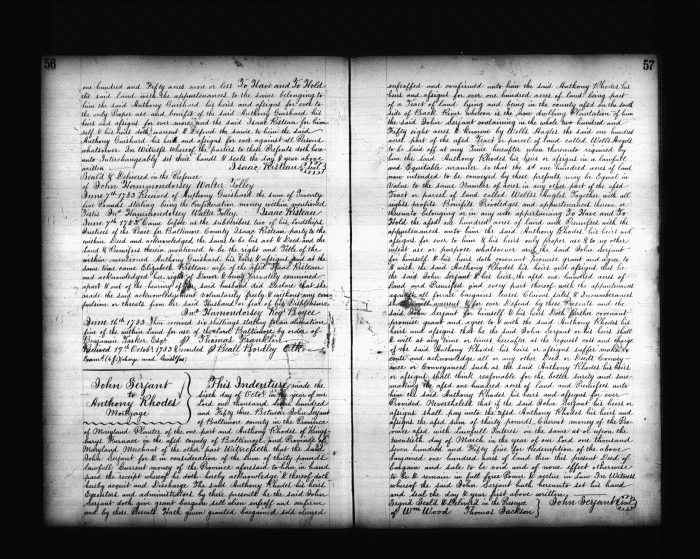 56
one hundred and Fifty acres more or less To Have and To Hold
the said land with the appurtenances to the same belonging to
him the said Anthony Guishard his heirs and assigns for ever to
the only Proper use and benifit of the said Anthony Guishard his
heirs and assigns for ever more and the said Isaac Risteau for him
self & his heirs doth warrant & Defend the same to him the said
Anthony Guishard his heirs and assigns for ever against all Persons
whatsoever In Witness whereof the parties to these Presents doth here
unto Interchangeably set their hands & seals the day & year above
written Isaac Risteau
Seal'd & Delivered in the Presence
of John Hammondorsey Walter Tolley
June 7th 1753 Received of Anthony Guishard the sum of Twenty
five Pounds Sterling being the Consideration money within mentioned
Testes Jno Hammondorsey Walter Tolley Isaac Risteau
June 7th 1753 Came before us the subscribers two of his Lordships
Justices of the Peace for Baltimore County Isaac Risteau party to the
within Deed and acknowledged the same to be his act & Deed and the
Land & Premises therein mentioned to be the right and Title of the
within mentioned Anthony Guishard his heirs & assigns and at the
same time came Elizabeth Risteau wife of the afsd Isaac Risteau
and acknowledged her right of Dower & being Privately examined
apart & out of the hearing of her said husband did Declare that she
made the said acknowledgement voluntarily freely & without any com
pulsion or threats from her said Husband or fear of his Displeasure
Jno Hamondorsey Rogr Boyce
June 16th 1753 Then received six shillings sterling for an alienation
fine of the within Land for use of the Lord Baltimore by order of
Benjamin Tasker Esqr Thomas Franklin
Received 17th Octobr 1753 & recorded Beall Bordley Clk
John Serjant
to
Anthony Rhodes
Mortgage
This Indenture made the
sixth day of Octobr in the year of our
Lord one thousand seven hundred
and Fifty three Between John Serjant
of Baltimore county in the Province
of Maryland Planter of the one part and Anthony Rhodes of Kings
burys Furnace in the afsd county of Baltimore and Province of
Maryland Merchant of the other part Witnesseth that the said
John Serjant for & in consideration of the sum of thirty pounds
lawfull Current money of the Province aforesaid to him in hand
paid the receipt whereof he doth hereby acknowledge & thereof doth
hereby acquit and Discharge the said Anthony Rhodes his heirs
Executors and administrators by these presents he the said John
Serjant doth give grant bargain sell alien enfeoff and confirm
and by these Presents Hath given granted bargained sold aliened
57
enfeoffed and confirmed unto him the said Anthony Rhodes his
heirs and assigns for ever one hundred acres of land being part
of a Tract of Land lying and being in the county afsd on the south
side of Back River whereon is the now dwelling Plantation of him
the said John Serjant containing in the whole two hundred and
Fifty eight acres & known by Wells Angles the said one hundred
acres part of the afsd Tract or parcel of land called Wells Angles
to be laid off at any Time hereafter when thereunto required by
him the said Anthony Rhodes his heirs or assigns in a lawfull
and Equitable manner so that the sd one hundred acres of land
now intended to be conveyed by these presents may be Equal in
Value to the same Number of acres in any other part of the afsd
Tract or parcel of Land called Wells Angles Together with all
rights profits Benifits Priviledges and appurtenances thereon or
thereunto belonging or in any wise appertaining To Have and To
Hold the afsd one hundred acres of Land and Premises with the
appurtenances unto him the said Anthony Rhodes his heirs and
assigns for ever to & his heirs only Proper use & to no other
intent use or purpose whatsoever and the said John Serjant
for himself & his heirs doth covenant promise grant and agree to
& with the said Anthony Rhodes his heirs and assigns that he
the said John Serjant & his heirs the afsd one hundred acres of
Land and Premises and every part thereof with the appurtenances
against all former bargains leases Claims sales & Incumbrances
shall warrant & for ever Defend by these Presents and the
said John Serjant for himself & his heirs doth further covenant
promise grant and agree to & with the said Anthony Rhodes his
heirs and assigns that he the said John Serjant or his heirs shall
& will at any time or times hereafter at the request cost and charge
of the said Anthony Rhodes his heirs or assigns suffer make ex
ecute and acknowledge all or any other Deed or Deeds Convey
ance or Conveyances such as the said Anthony Rhodes his heirs
or assigns shall think reasonable for the better surety and sure
making the afsd one hundred acres of land and Premises unto
him the said Anthony Rhodes his heirs and assigns for ever
Provided Nevertheless that if the said John Serjant his heirs or
assigns shall pay unto the afsd Anthony Rhodes his heirs and
assigns the afsd sum of thirty pounds Current money of the Pro
vince afsd with Lawfull Interest on the same at or upon the
twentieth day of March in the year of our Lord one thousand
seven hundred and Fifty five for Redemption of the above
bargained one hundred acres of Land then this present Deed of
bargain and sale to be void and of none effect otherwise
to be & remain in full force Power & vertue in Law In Witness
whereof the said John Serjant hath hereunto set his hand
and seal the day & year first above written
Signed Seald & Delivered in the Presence John Serjant
of Wm Wood Thomas Jackson